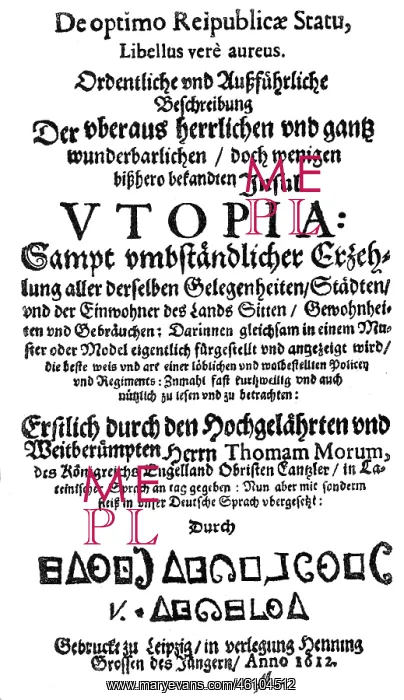 De optimo Reipublicæ Statu,
Libellus verè aureus.
Ordentliche vnd Außführliche
Beschreibung
Der vberaus herrlichen vnd gantz
wunderbarlichen / doch wenigen
bißhero bekandten Insul
VTOPIA:
Sampt vmbständlicher Erzeh-
lung aller derselben Gelegenheiten/Städten/
vnd der Einwohner des Lands Sitten / Gewohnhei-
ten vnd Gebräuchen: Darinnen gleichsam in einem Mu-
ster oder Model eigentlich fürgestellt vnd angezeigt wird/
die beste weis vnd art einer löblichen vnd wolbestellten Policey
vnd Regiments: Zumahl fast kurtzweilig vnd auch
nützlich zu lesen vnd zu betrachten:
Erstlich durch den Hochgelährten vnd
Weitberümpten Herrn Thomam Morum,
des Königreichs Engelland Obristen Cantzler / in La-
teinischer Sprach an tag gegeben: Nun aber mit sonderm
fleiß in vnser Deutsche Sprach vbergesetzt:
Durch
Gedruckt zu Leipzig/ in verlegung Henning
Grossen des Jüngern/ Anno 1612.
ME
PL
ME
PL
www.maryevans.com/46104512